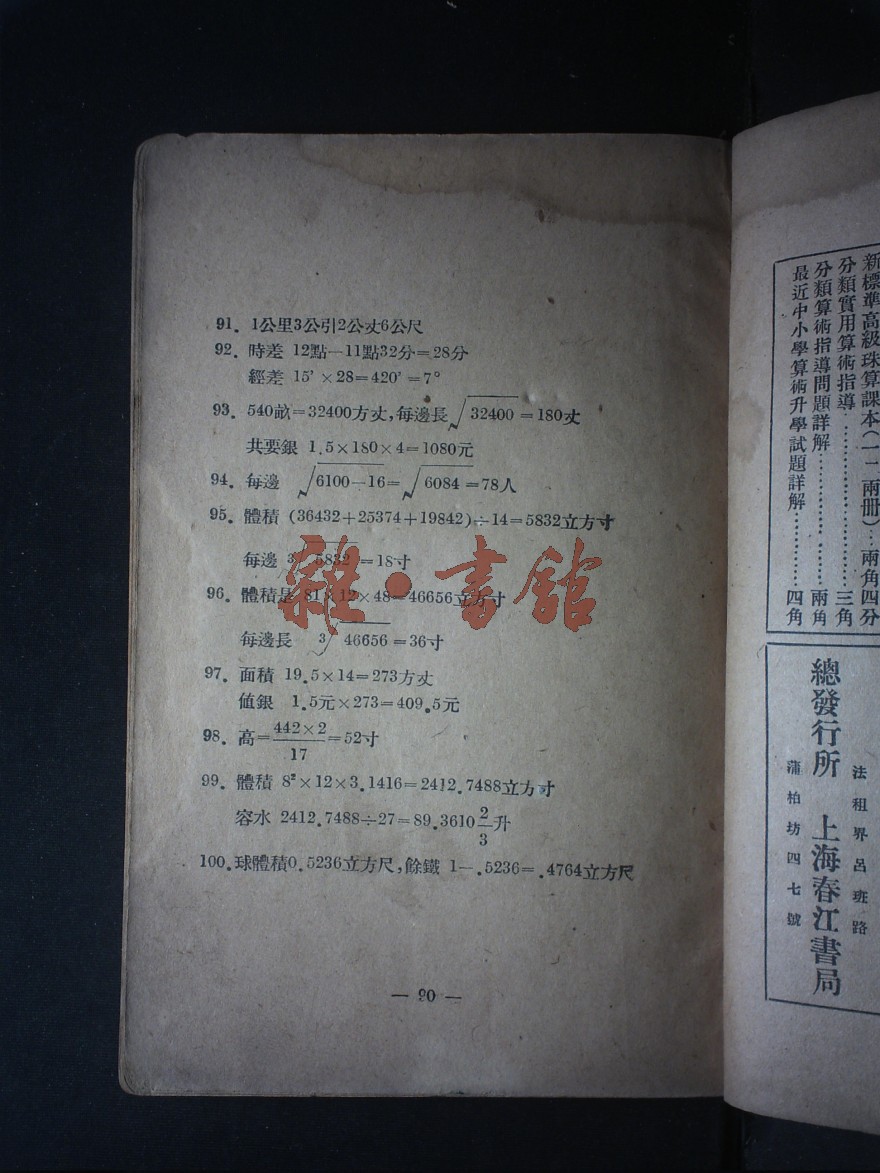 91. 1公里3公引2公丈6公尺
92. 時差 12點—11點32分=28分
經差 15'×28=420'=7°
93. 540畝=32400方丈,每邊長√32400=180丈
共要銀 1.5×180×4=1080元
94. 每邊 √6100—16=√6084=78人
95. 體積 (36432+25374+19842)÷14=5832立方寸
每邊 3√5832=18寸
96. 體積是 81×12×48=46656立方寸
每邊長 3√46656=36寸
97. 面積 19.5×14=273方丈
値銀 1.5元×273=409.5元
98. 高=442×2/17=52寸
99. 體積 8²×12×3.1416=2412.7488立方寸
容水 2412.7488÷27=89.3610 2/3升
100. 球體積0.5236立方尺,餘鐵 1—.5236=.4764立方尺
— 90 —
雜·書館
新標準高級珠算課本(一二兩册)…兩角四分
分類實用算術指導…………………三角
分類算術指導問題詳解……………兩角
最近中小學算術升學試題詳解………四角
法租界呂班路
蒲柏坊四七號
總發行所 上海春江書局